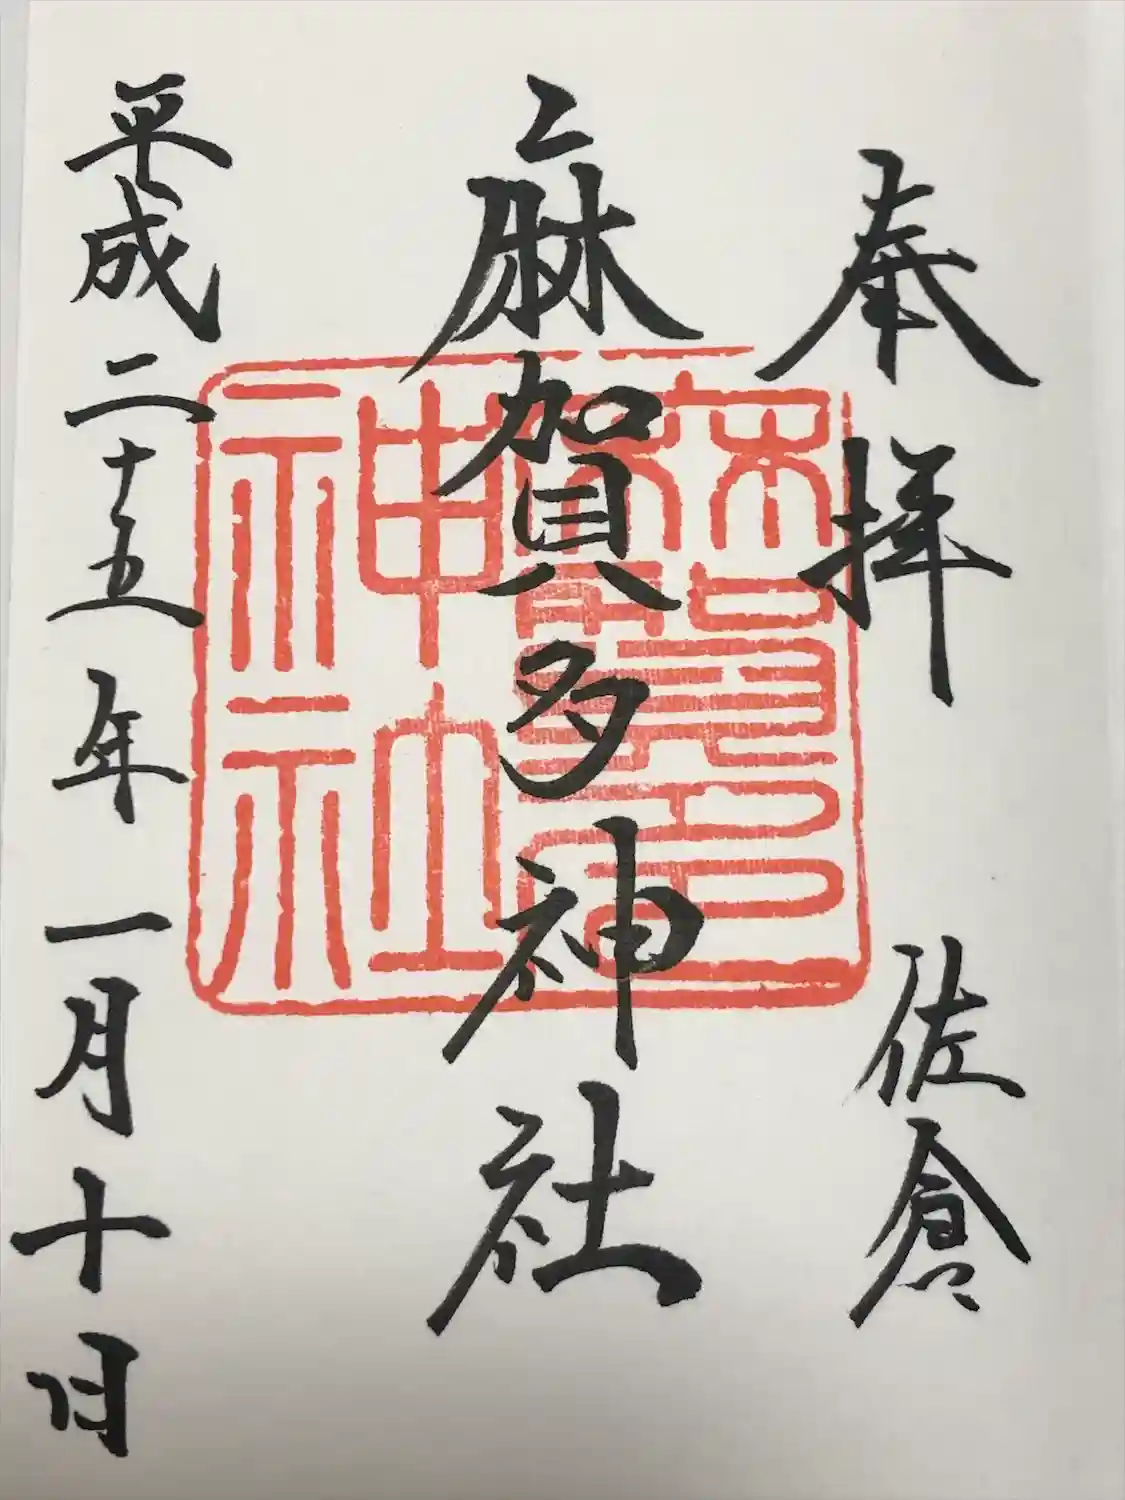 奉拝 佐倉
麻賀多神社
麻賀多神社
平成二十五年一月十日